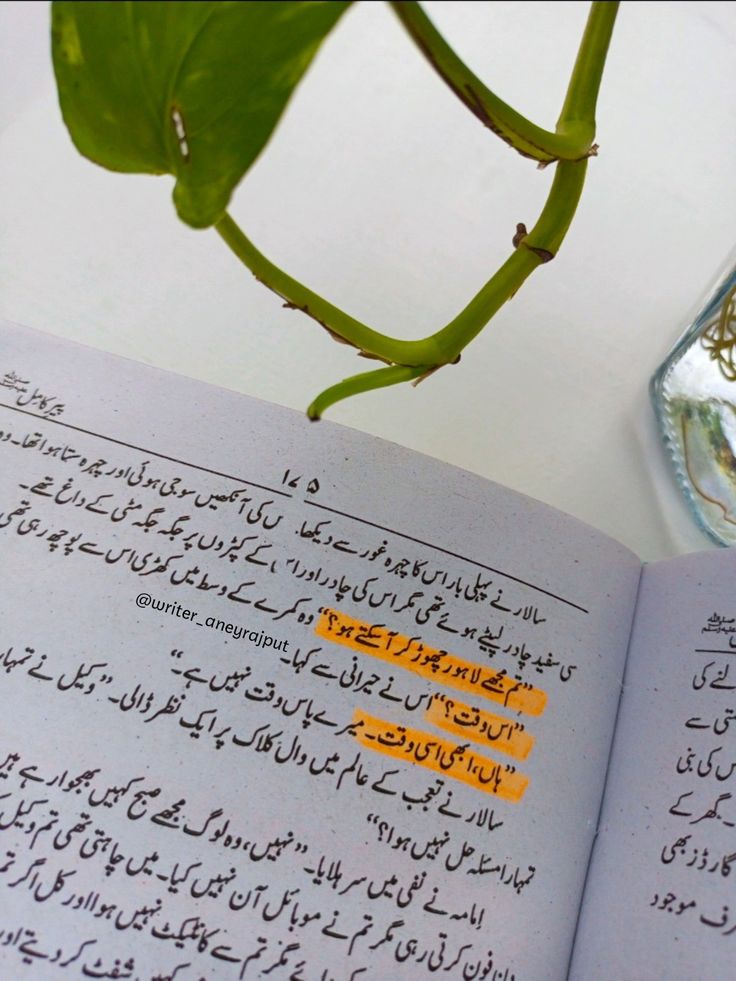 پیر کامل ﷺ
۱۷۵
سالار نے پہلی بار اس کا چہرہ غور سے دیکھا۔ اس کی آنکھیں سوجی ہوئی اور چہرہ ستا ہوا تھا۔ وہ
سی سفید چادر لپیٹے ہوئے تھی مگر اس کی چادر اور اس کے کپڑوں پر جگہ جگہ مٹی کے داغ تھے۔
”تم مجھے لاہور چھوڑ کر آ سکتے ہو؟“ وہ کمرے کے وسط میں کھڑی اس سے پوچھ رہی تھی
@writer_aneyrajput
”اس وقت؟“ اس نے حیرانی سے کہا۔
”ہاں، ابھی اسی وقت۔ میرے پاس وقت نہیں ہے۔“
سالار نے تعجب کے عالم میں وال کلاک پر ایک نظر ڈالی۔ ”وکیل نے تمہارا
تمہارا مسئلہ حل نہیں ہوا؟“
امامہ نے نفی میں سر ہلایا۔ ”نہیں، وہ لوگ مجھے صبح کہیں بھجوا رہے ہیں
فون کرتی رہی مگر تم نے موبائل آن نہیں کیا۔ میں چاہتی تھی تم وکیل
مگر تم سے کانٹیکٹ نہیں ہوا اور کل اگر تم
کہیں شفٹ کر دیتے اور
ﷺ
لنے کی
سے
س کی بنی
۔ گھر کے
گارڈز بھی
رف موجود